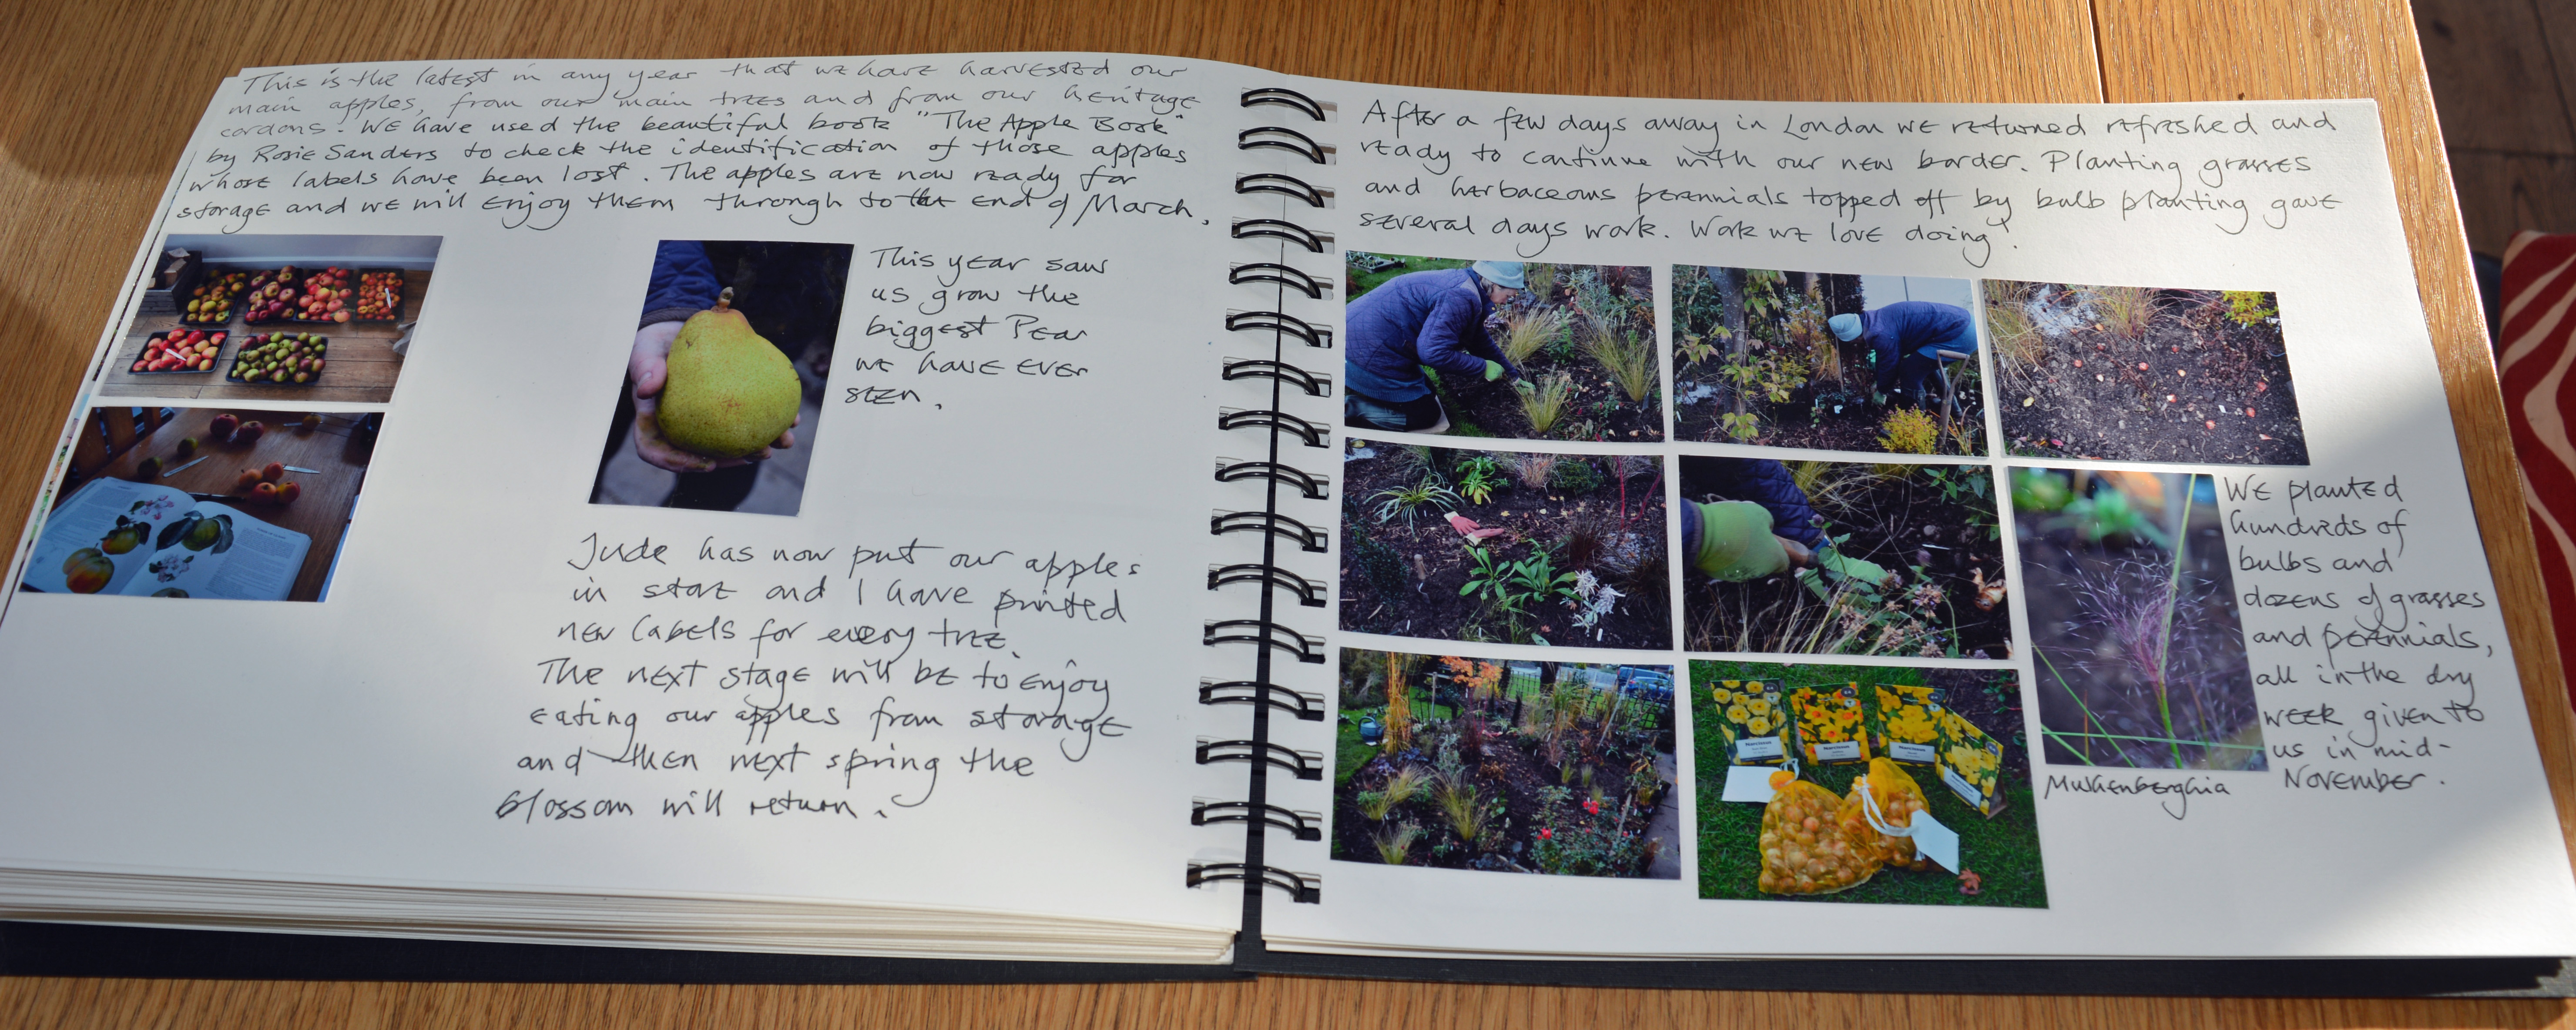 This is the latest in any year that we have harvested our
main apples, from our main trees and from our heritage
cordons. We have used the beautiful book "The Apple Book"
by Rosie Sanders to check the identification of those apples
whose labels have been lost. The apples are now ready for
storage and we will enjoy them through to the end of March.
This year saw
us grow the
biggest Pear
we have ever
seen.
Jude has now put our apples
in store and I have printed
new labels for every tree.
The next stage will be to enjoy
eating our apples from storage
and then next spring the
blossom will return.
After a few days away in London we returned refreshed and
ready to continue with our new border. Planting grasses
and herbaceous perennials topped off by bulb planting gave
several days work. Work we love doing!
We planted
hundreds of
bulbs and
dozens of grasses
and perennials,
all in the dry
week given to
us in mid-
November.
Muhenberghia